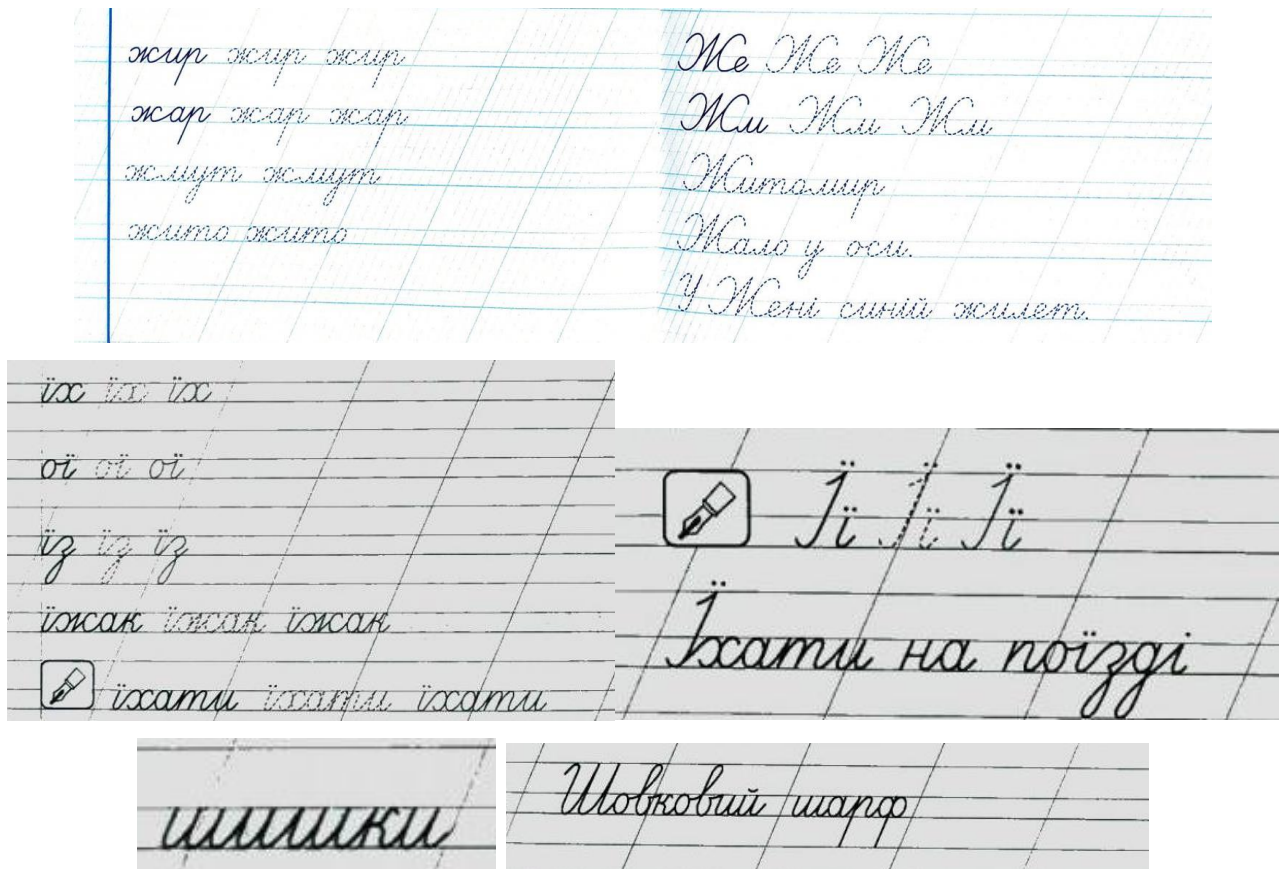 жир жир жир
жар жар жар
жмут жмут
жито жито
Же Же Же
Жи Жи Жи
Житомир
Жало у оси.
У Жені синій жилет.
їх їх їх
ої ої ої
їз їз їз
їжак їжак їжак
їхати їхати їхати
Її Її Її
Їхати на поїзді
шишки
Шовковий шарф